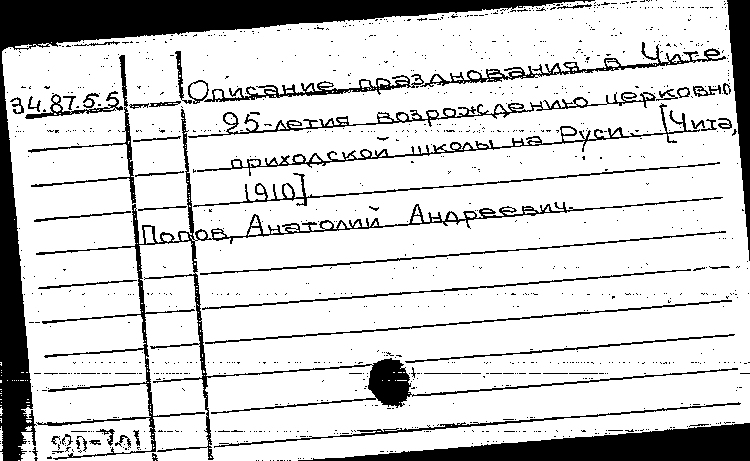 34.87.5.5 Описание празднования в Чите
25-летия возрождению церковно
приходской школы на Руси. [Чита,
1910].
Попов, Анатолий Андреевич.